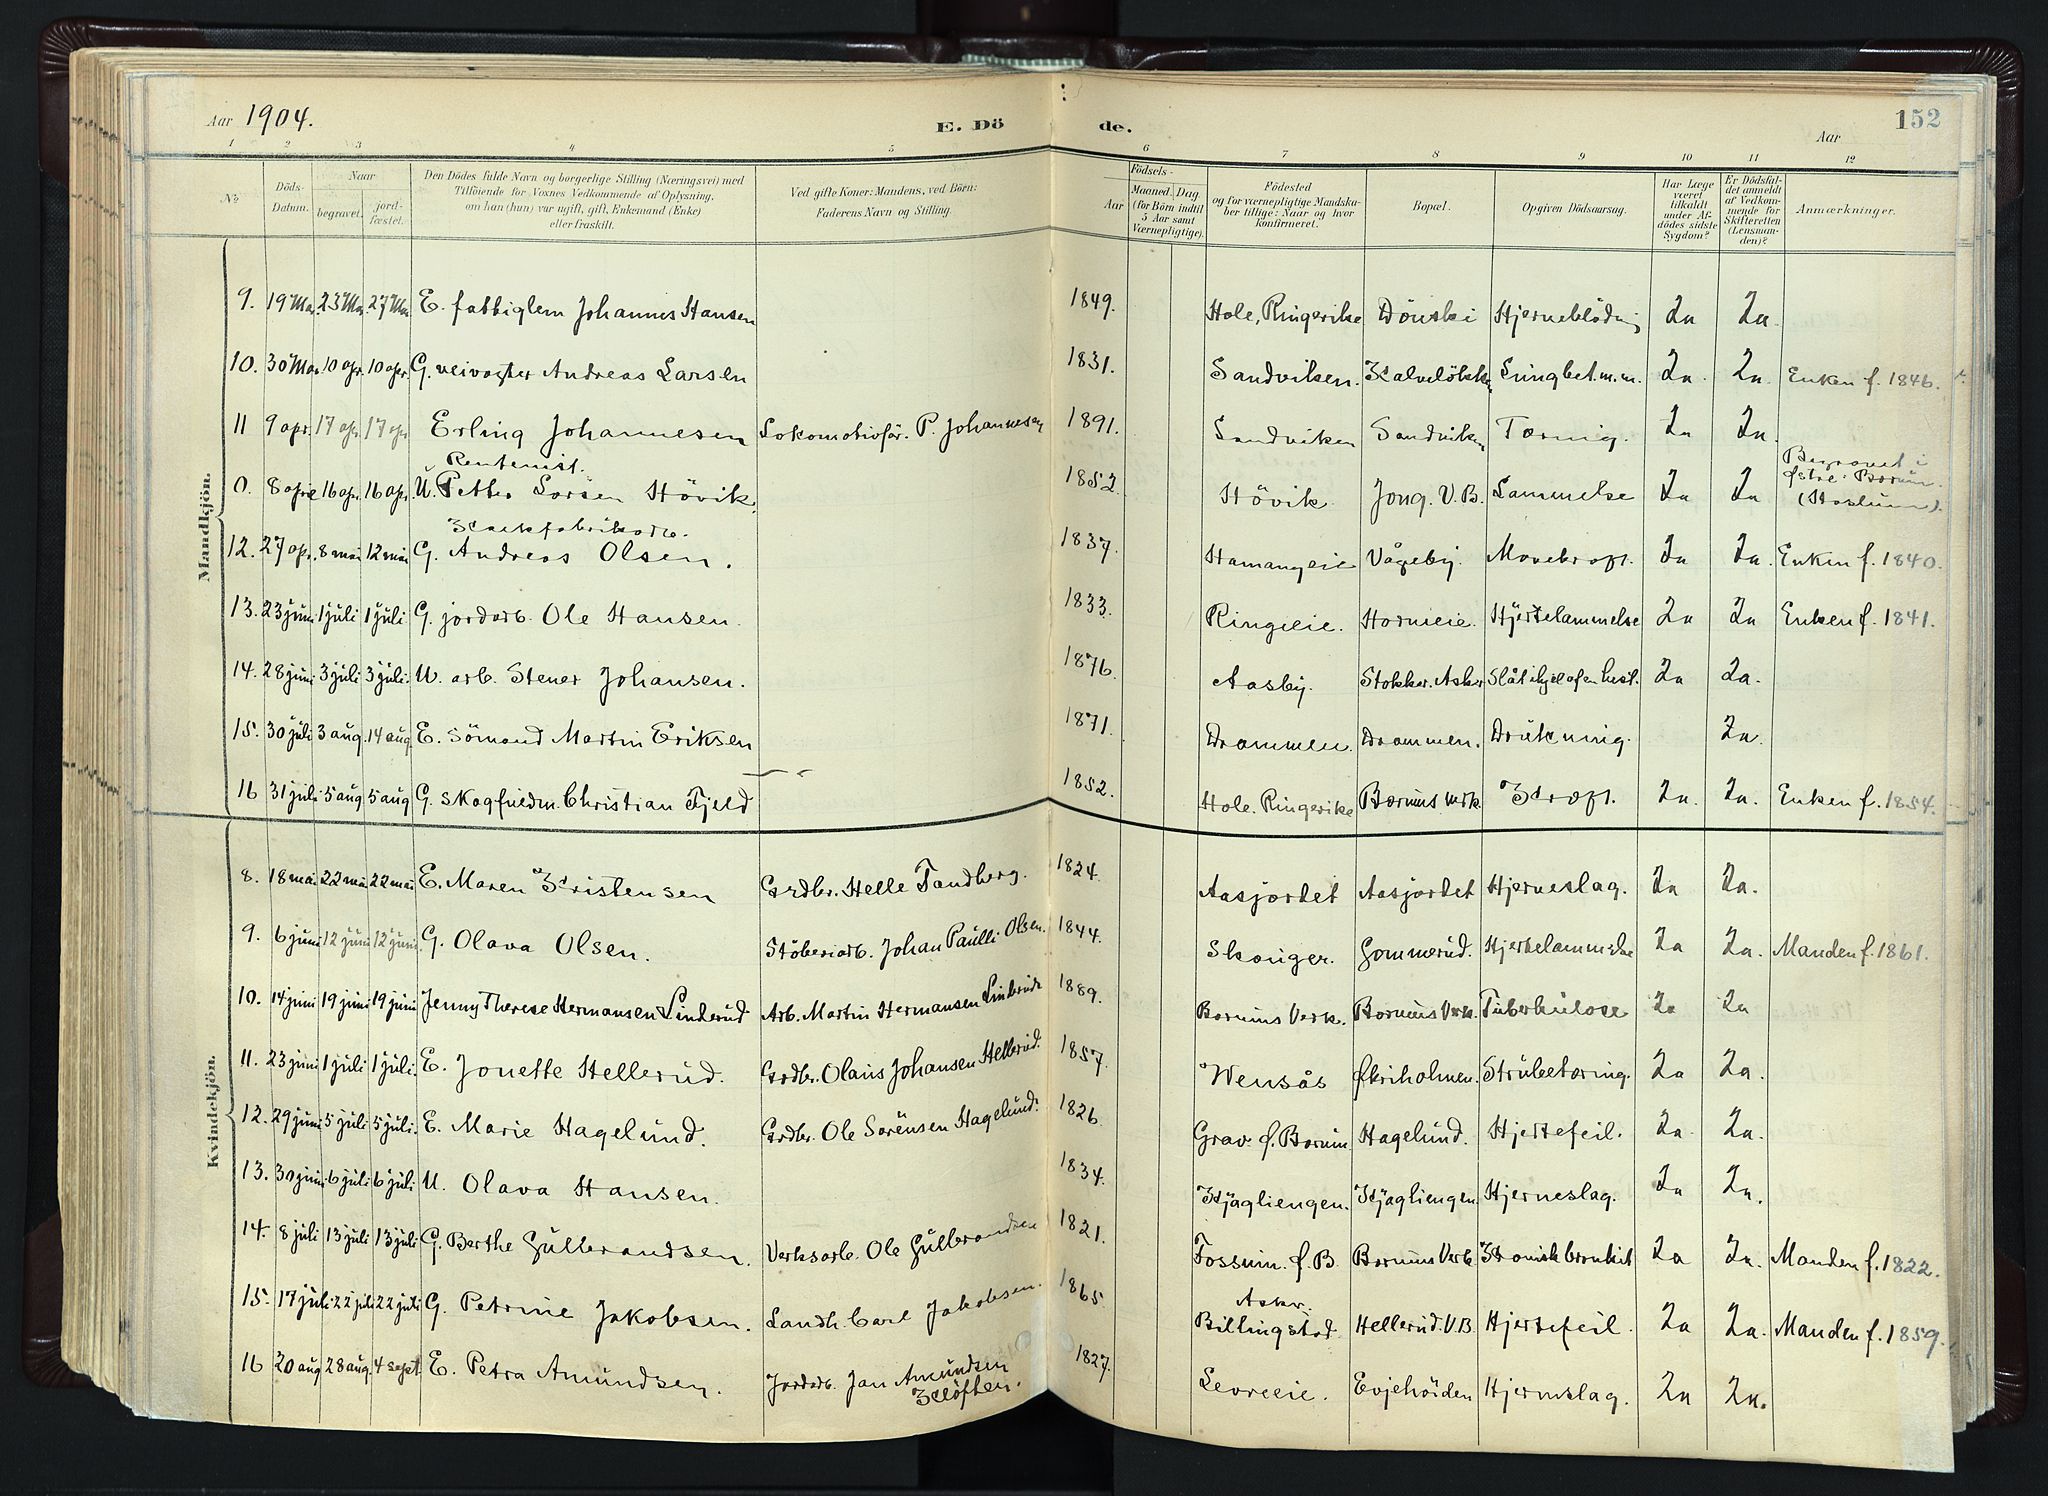 Aar 1904.
E. Dö de.
Aar
152
1 2 3 4 5 6 7 8 9 10 11 12
No
Döds-Datum.
Naar
begravet.
jord-fæstet.
Den Dödes fulde Navn og borgerlige Stilling (Næringsvei) med
Tilföiende for Voxnes Vedkommende af Oplysning,
om han (hun) var ugift, gift, Enkemand (Enke)
eller fraskilt.
Ved gifte Koner: Mandens, ved Börn:
Faderens Navn og Stilling.
Födsels-
Aar
Maaned. Dag.
(for Börn indtil
5 Aar samt
Værnepligtige).
Födested
og for værnepligtige Mandska-
ber tillige: Naar og hvor
konfirmeret.
Bopæl.
Opgiven Dödsaarsag.
Har Læge
været
tilkaldt
under Af-
dödes sidste
Sygdom?
Er Dödsfal-
det anmeldt
af Vedkom-
mende for
Skifteretten
(Lensman-
den)?
Anmærkninger.
Mandkjön.
9. 19 Mar. 23 Mar. 27 Mar E. fattiglem Johannes Hansen 1849. Hole, Ringerike Dönski Hjerneblödnig Ja Ja.
10. 30 Mar. 10 apr. 10 apr. G. veivogter Andreas Larsen 1831. Sandviken. Kalvelökke Lungbet. m.m. Ja. Ja. Enken f. 1846.
11 9 apr. 17 apr. 17 apr Erling Johannesen Lokomotivför. P. Johannesen 1891. Sandviken Sandviken Tæring. Ja Ja.
Rentenist.
0. 8 april 16 apr. 16 apr. U. Petter Larsen Hövik. 1852. Hövik. Jong. V.B. Lammelse Ja Ja Begravet i Østre Bærum. (Haslum).
12. 27 apr. 8 mai 12 mai G. Andreas Olsen. 1837. Hamangeie Vågeby. Mavekræft. Ja Ja. Enken f. 1840.
13. 23 juni 1 juli 1 juli G. jordarb. Ole Hansen. 1833. Ringieie. Hornieie. Hjertelammelse Ja Ja Enken f. 1841.
14. 28 juni 3 juli 3 juli. U. arb. Stener Johansen. 1876. Aasby. Stokker. Asker Slåt ihjel af en hest. Ja Ja.
15. 30 juli 3 aug. 14 aug. E. Sömand Martin Eriksen 1871. Drammen. Drammen. Drukning. Ja.
16 31 juli 5 aug 5 aug G. Skogfuldm. Christian Fjeld 1852. Hole. Ringerike Bærums verk. Kræft. Ja. Ja. Enken f. 1854.
Kvindekjön.
8. 18 mai 22 mai 22 mai E. Maren Kristensen Grdbr. Helle Tandberg. 1824. Aasjordet Aasjordet Hjerneslag. Ja Ja.
9. 6 juni 12 juni 12 juni. G. Olava Olsen. Stöberiarb. Johan Paulli Olsen. 1844. Skauger. Gommerud. Hjertelammelse Ja Ja. Manden f. 1861.
10. 14 juni 19 juni 19 juni Jenny Therese Hermansen Linderud Arb. Martin Hermansen Linderud 1889. Bærums Verk. Bærums Verk. Tuberkulose Ja Ja
11. 23 juni 1 juli 1 juli. E. Jonette Hellerud. Grdbr. Olaus Johansen Hellerud. 1857. Wensås Økriholmen. Strubetæring. Ja Ja.
12. 29 juni 5 juli 5 juli. E. Marie Hagelund. Grdbr. Ole Sørensen Hagelund. 1826. Grav. Ø. Bærum Hagelund. Hjertefeil. Ja. Ja.
13. 30 juni 6 juli 6 juli U. Olava Hansen. 1834. Kjagliengen. Kjagliengen Hjerneslag. Ja Ja.
14. 8 juli 13 juli 13 juli G. Berthe Gulbrandsen. Verksarb. Ole Gulbrandsen 1821. Fossum. Ø. B. Bærums Verk Kronisk bronkit Ja Ja. Manden f. 1822.
15. 17 juli 22 juli 22 juli G. Petrine Jakobsen. Landh. Carl Jakobsen. 1865. Asker. Billingstad Hellerud. V.B. Hjertefeil. Ja Ja. Manden f. 1859.
16 20 aug 28 aug. 4 sept E. Petra Amundsen. Jordarb. Jan Amundsen Klöften. 1827. Levreeie. Evjehöiden Hjerneslag. Ja Ja.